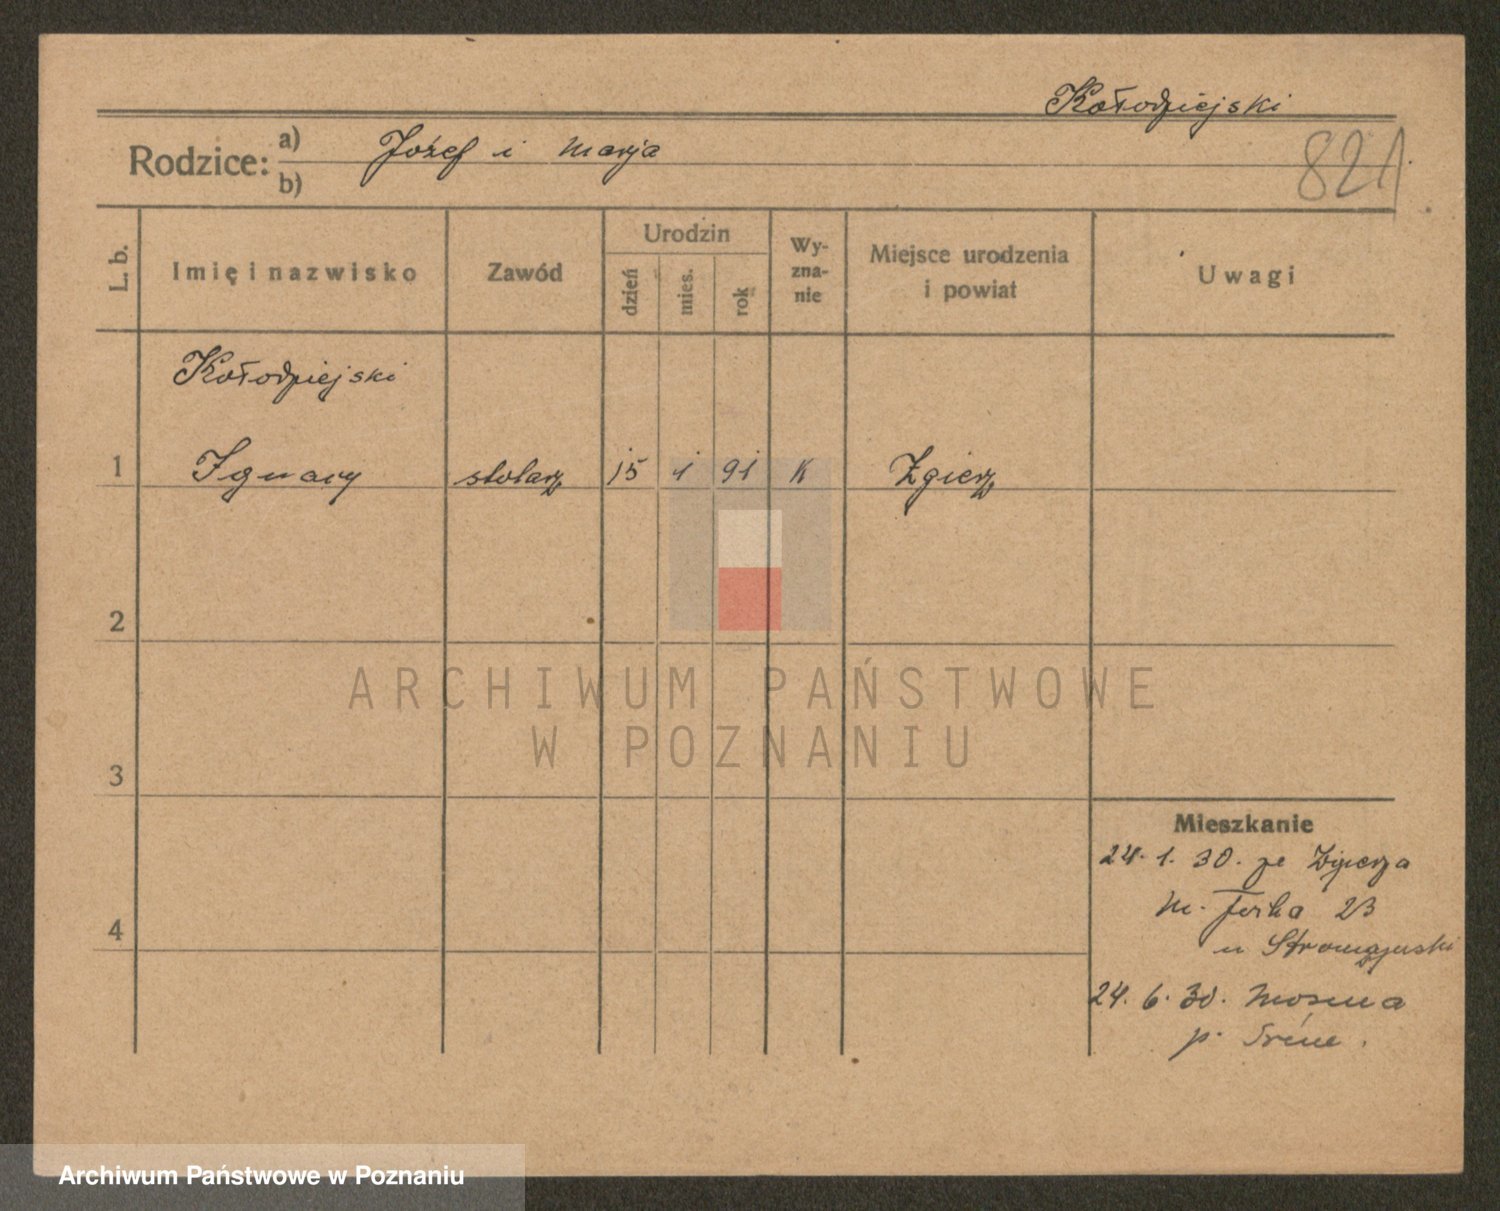 Kołodziejski
Rodzice: a) Józef i Marja
b)
821
L. b.
Imię i nazwisko
Zawód
Urodzin
dzień
mies.
rok
Wy-
zna-
nie
Miejsce urodzenia
i powiat
Uwagi
Kołodziejski
1 Ignacy stolarz 15 1 91 K Zgierz
2
3
4
Mieszkanie
24. 1. 30. ze Zgierza
23
u
24. 6. 30. Mosina
p. Śrem.
ARCHIWUM PAŃSTWOWE
W POZNANIU
Archiwum Państwowe w Poznaniu